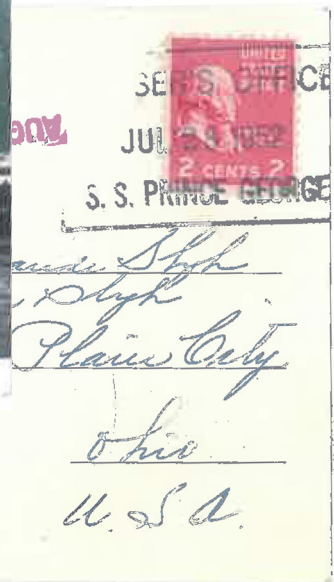 UNITED
SER'S OFFICE
AUG
JUL 28 1952
2 CENTS 2
S. S. PRINCE GEORGE
Slyh
Slyh
Plain City
Ohio
U. S. A.